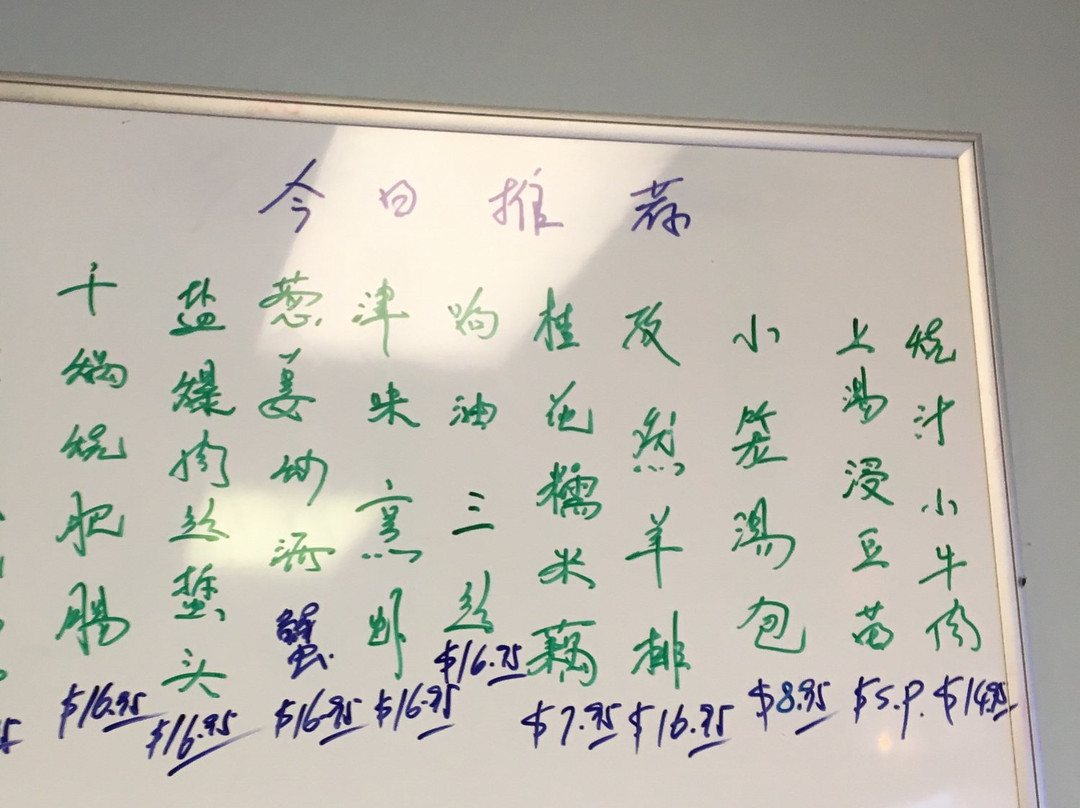 今日推荐
干锅烧肥肠
$16.95
盐爆肉丝蜇头
$16.95
葱姜
蟹
$16.95
津味烹虾
$16.95
响油三丝
$16.95
桂花糯米藕
$7.95
孜然羊排
$16.95
小笼湯包
$8.95
上湯浸豆苗
$S.P.
烧汁小牛肉
$14.95